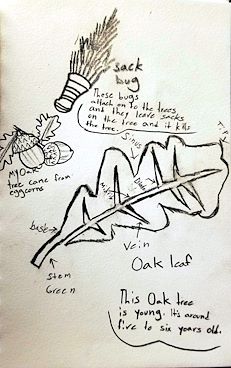 sack
bug
These bugs
attach on to the trees
and they leave sacks
on the tree and it kills
the tree.
My Oak
tree came from
eggcorns
Sinus
Tip
Midrib
base
Vein
stem
Green
Oak leaf
This Oak tree
is young. It's around
five to six years old.